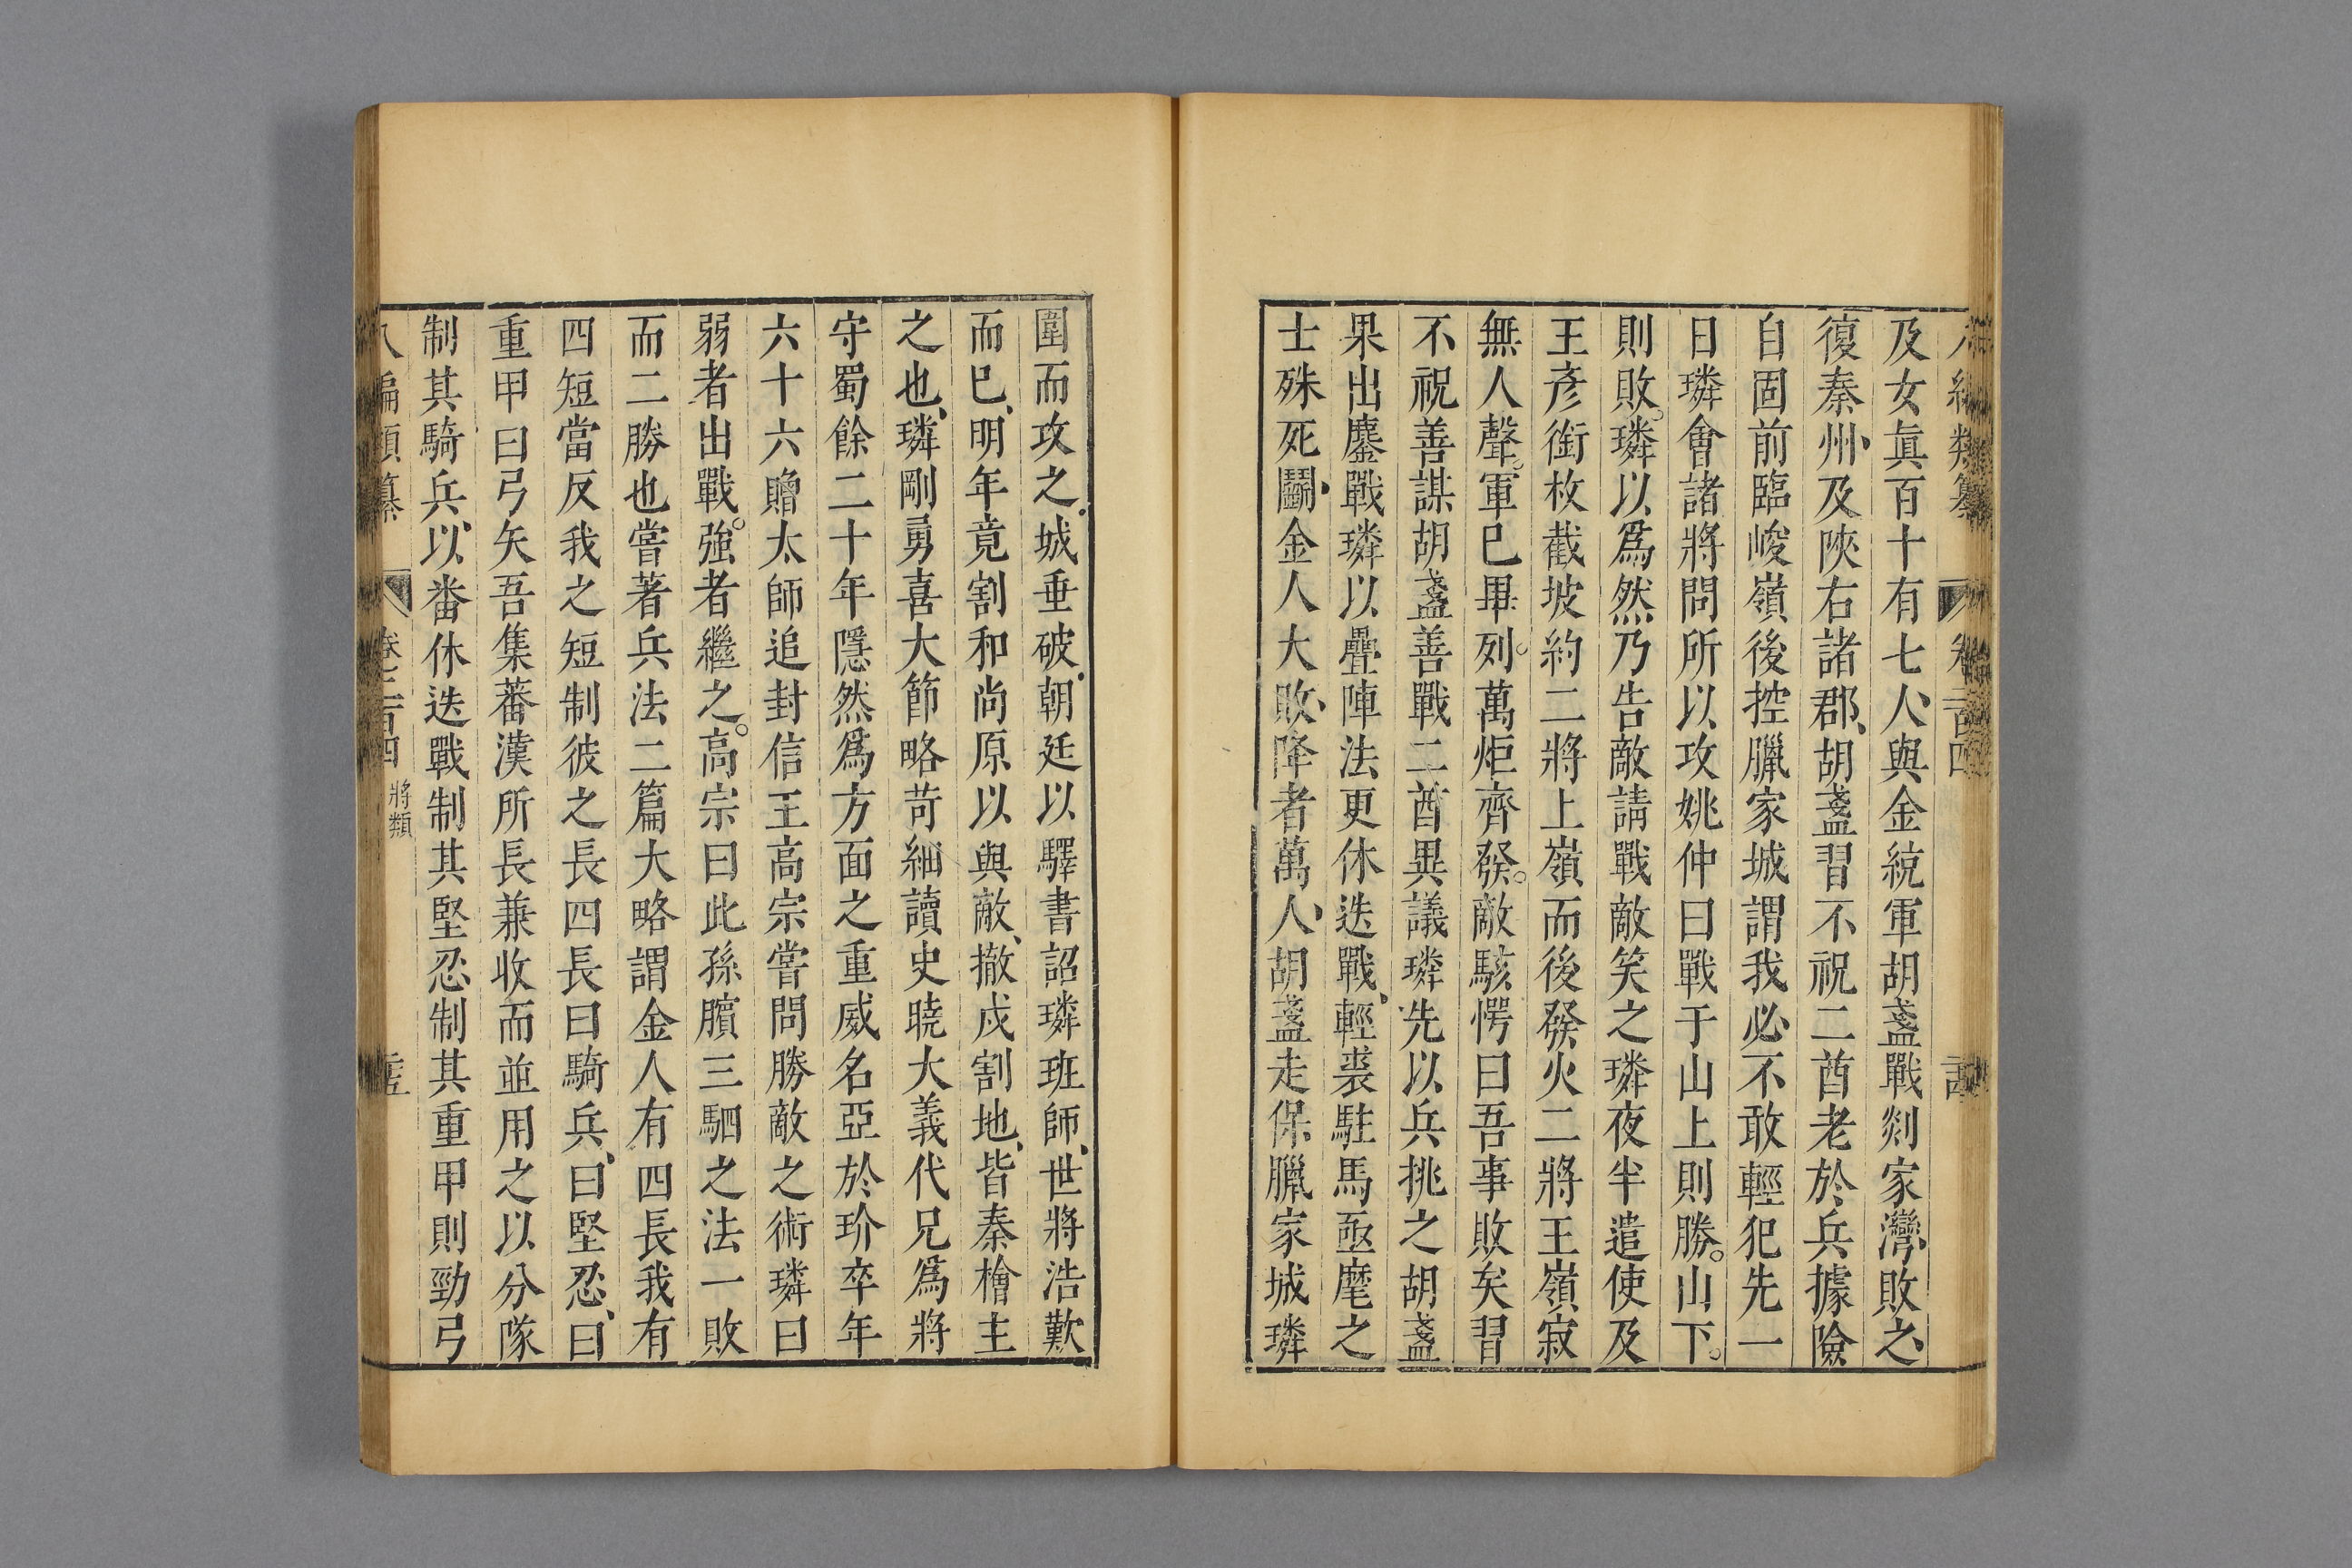 及女眞百十有七人與金統軍胡盞戰剡家灣敗之
復秦州及陝右諸郡胡盞習不祝二酋老於兵據險
自固前臨峻嶺後控臘家城謂我必不敢輕犯先一
日璘會諸將問所以攻姚仲曰戰于山上則勝山下
則敗璘以爲然乃告敵請戰敵笑之璘夜半遣使及
王彥銜枚截坡約二將上嶺而後發火二將王嶺寂
無人聲軍已畢列萬炬齊發敵駭愕曰吾事敗矣習
不祝善謀胡盞善戰二酋異議璘先以兵挑之胡盞
果出鏖戰璘以疊陣法更休迭戰輕裘駐馬亟麾之
士殊死鬭金人大敗降者萬人胡盞走保臘家城璘
圍而攻之城垂破朝廷以驛書詔璘班師世將浩歎
而已明年竟割和尚原以與敵撤戍割地皆秦檜主
之也璘剛勇喜大節略苛細讀史曉大義代兄爲將
守蜀餘二十年隱然爲方面之重威名亞於玠卒年
六十六贈太師追封信王高宗嘗問勝敵之術璘曰
弱者出戰強者繼之高宗曰此孫臏三駟之法一敗
而二勝也嘗著兵法二篇大略謂金人有四長我有
四短當反我之短制彼之長四長曰騎兵曰堅忍曰
重甲曰弓矢吾集蕃漢所長兼收而並用之以分隊
制其騎兵以番休迭戰制其堅忍制其重甲則勁弓
八編類纂 將類